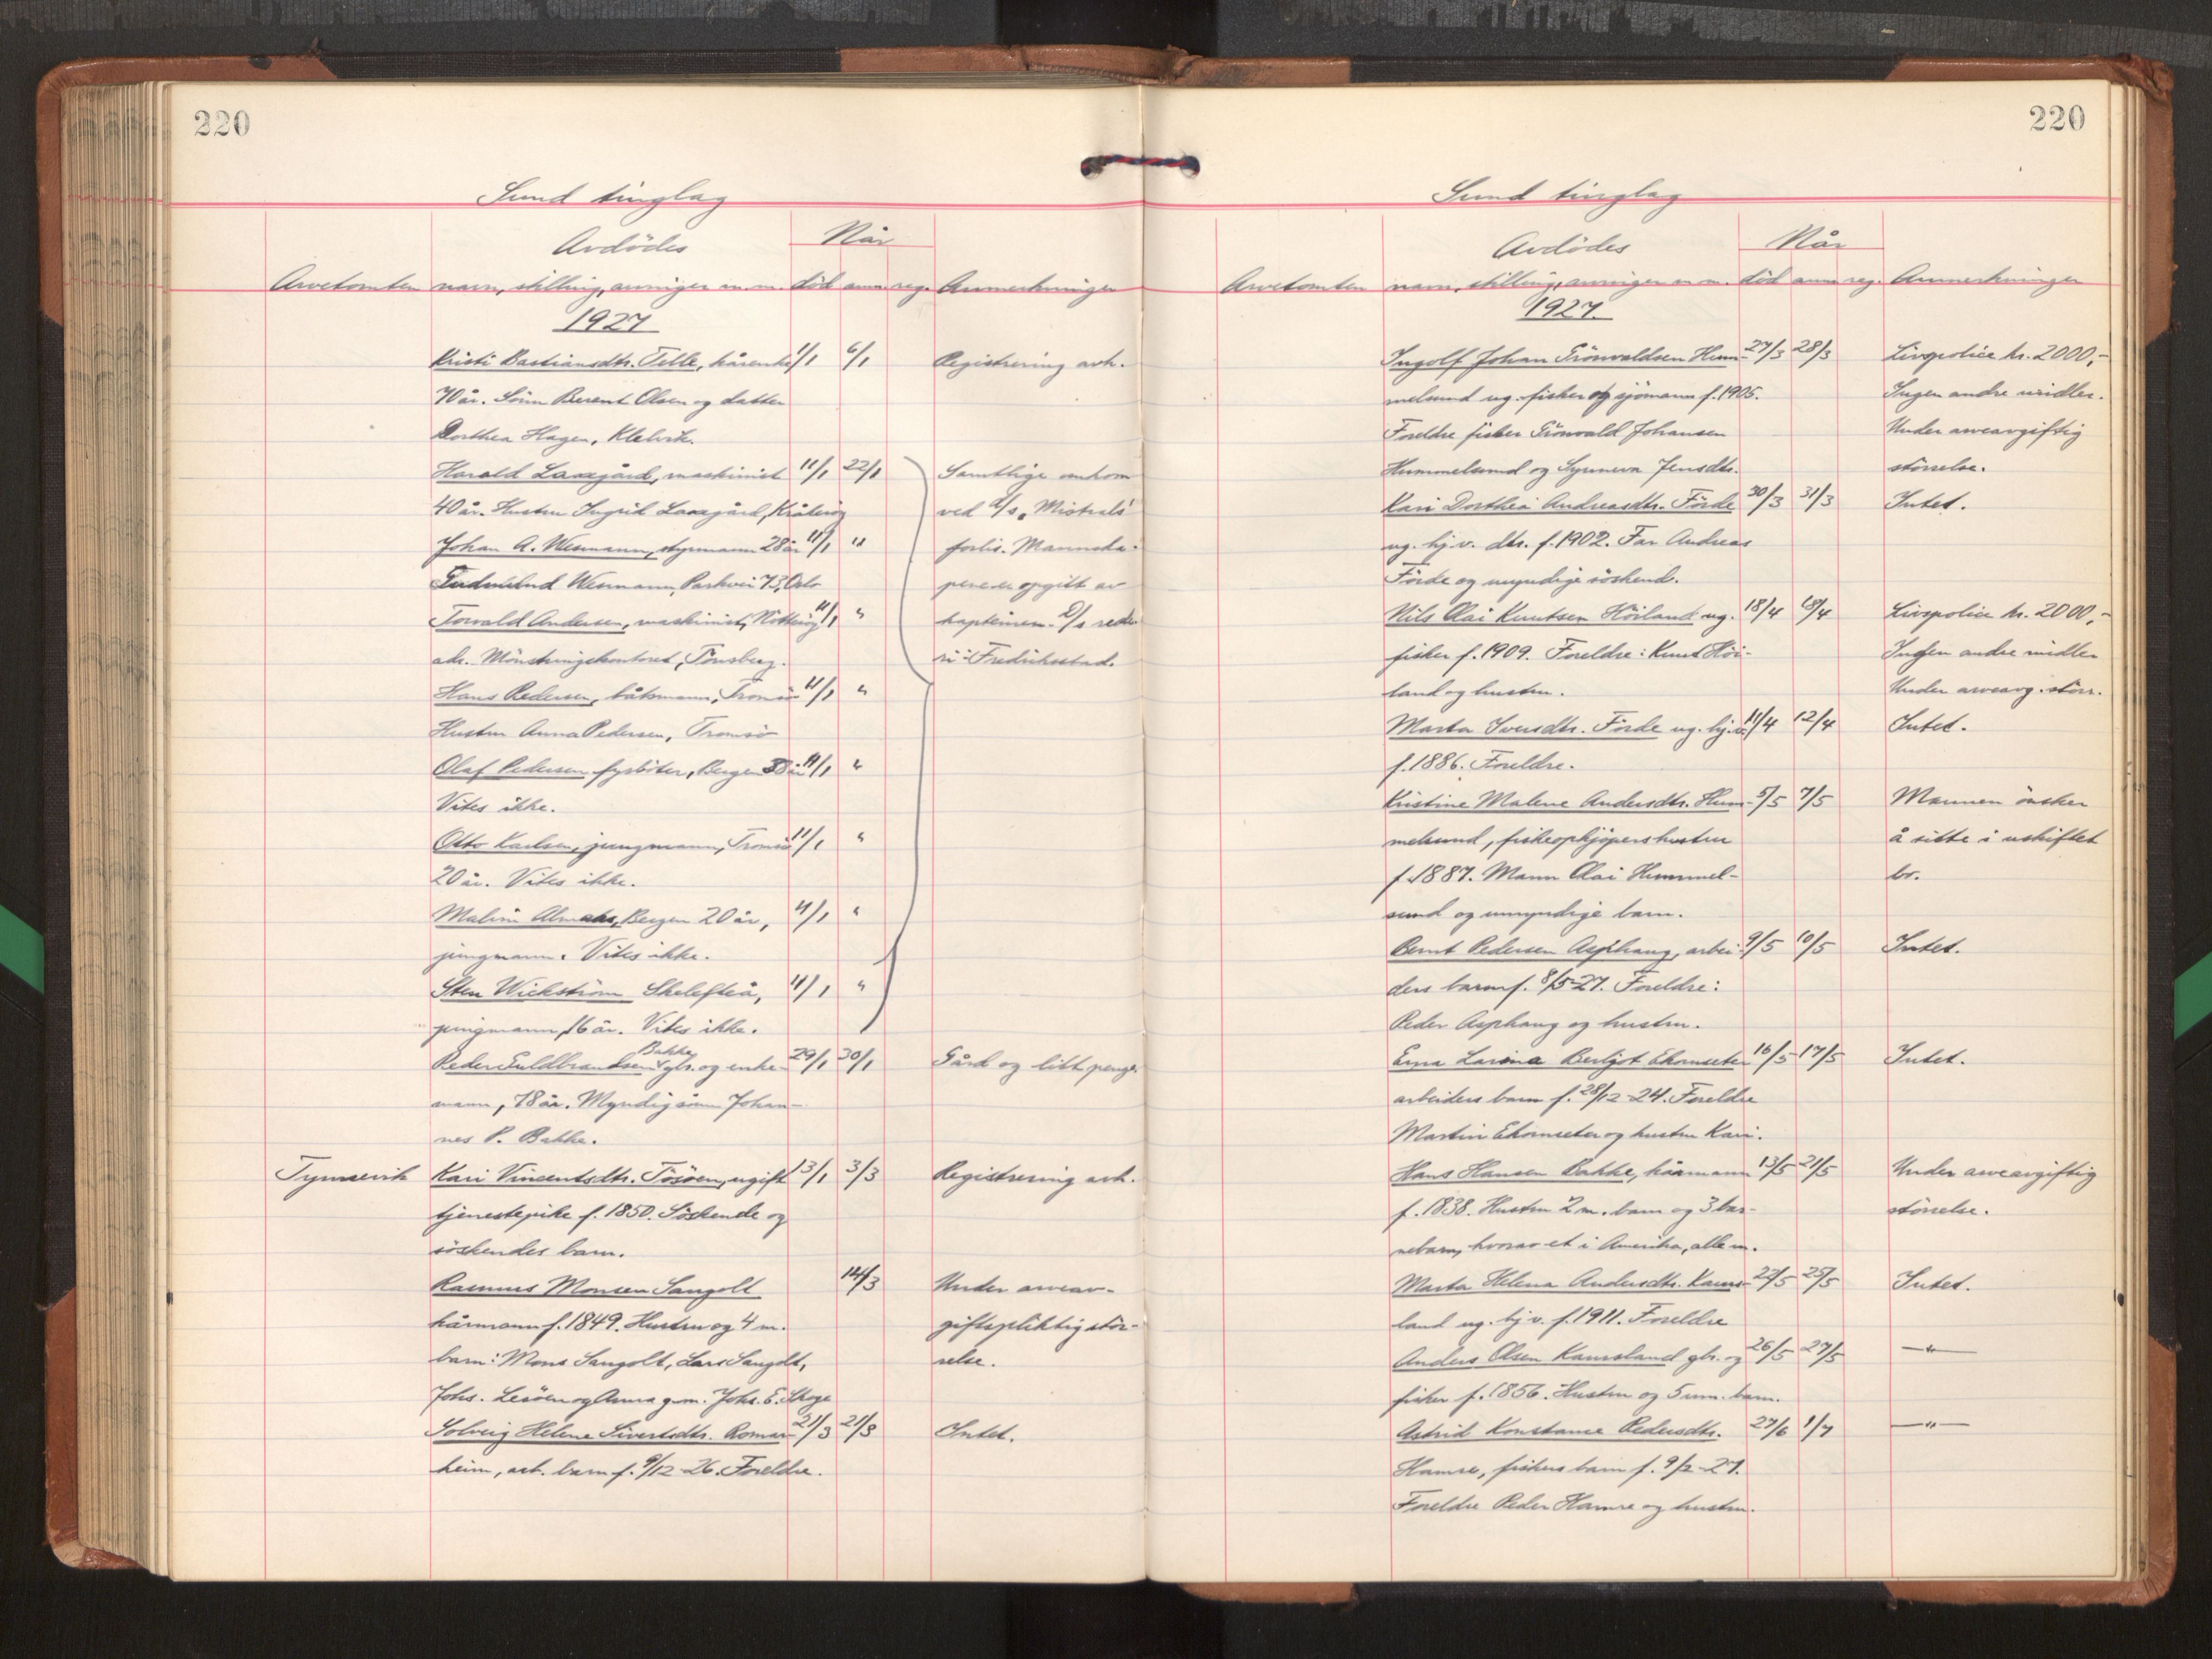 220
Sund tinglag
Avdödes
Når
Arvetomten navn, stilling, arvinger m.m. död anm. reg. Anmerkninger
1927
Kristi Bastiansdtr. Telle, kårenke 1/1 6/1 Registrering avh.
70 år. Sönn Berent Olsen og datter
Dorthea Hagen, Kleivik.
Harald Laasgård, maskinist 11/1 22/1 Samtlige omkom
40 år. Hustru Ingrid Laasgård, Kråkeröy ved D/s "Mistrals"
Johan A. Wesmann, styrmann 28 år 11/1 " forlis. Mannska-
Wesmann, Parkvei 73, Oslo pene er opgitt av
Torvald Andersen, maskinist, Nötteröy 11/1 " kapteinen. D/s rede-
adr. Mönstringskontoret, Tönsberg. ri: Fredrikstad.
Hans Pedersen, båtsmann, Tromsö 11/1 "
Hustru Anna Pedersen, Tromsö
Olaf Pedersen fyrböter, Bergen 38 år 11/1 "
Vites ikke.
Otto Karlsen, jungmann, Tromsö 11/1 "
20 år. Vites ikke.
Malvin Bergen 20 år, 11/1 "
jungmann. Vites ikke.
Sten Wickström Skelefteå, 11/1 "
jungmann, 16 år. Vites ikke.
Bakke
Peder Guldbrandsen gbr. og enke- 29/1 30/1 Gård og litt penger
mann, 78 år. Myndig sönn Johan-
nes P. Bakke.
Tynnervik Kari Vincentsdtr. Tösöen, ugift 13/1 3/3 Registrering avh.
tjenestepike f. 1850. Söskende og
söskendes barn.
Rasmus Monsen Sangolt 14/3 Under arveav-
kårmann f. 1849. Hustru og 4 m. giftspliktig stör-
barn: Mons Sangolt, Lars Sangolt, relse.
Johs. Lerøen og Anna g.m. Johs. E. Skoge
Solveig Helene Sivertsdtr. Romar- 21/3 21/3 Intet.
heim, arb. barn f. 9/12-26. Foreldre.
220
Sund tinglag
Avdödes
Når
Arvetomten navn, stilling, arvinger m.m. död anm. reg. Anmerkninger
1927.
Ingolf Johan Trönvaldsen Hum- 27/3 28/3 Livspolice kr. 2000,-
melsund ug. fisker og sjömann f. 1905. Ingen andre midler.
Foreldre fisker Trönvald Johansen Under arveavgiftig
Hummelsund og Synneva Jensdtr. störrelse.
Kari Dorthea Andreasdtr. Förde 30/3 31/3 Intet.
ug. hj.v. dtr. f. 1902. Far Andreas
Förde og umyndige söskend.
Nils Olai Knutsen Höiland ug. 18/4 18/4 Livspolice kr. 2000,-
fisker f. 1909. Foreldre: Knut Höi- Ingen andre midler
land og hustru. Under arveavg. störr.
Marta Iversdtr. Förde ug. hj.v. 11/4 12/4 Intet.
f. 1886. Foreldre.
Kristine Malene Andersdtr. Hum- 5/5 7/5 Mannen önsker
melsund, fiskeopkjöpers hustru å sitte i uskiftet
f. 1887. Mann Olai Hummel- bo.
sund og umyndige barn.
Bernt Pedersen Asphaug, arbei- 9/5 10/5 Intet.
ders barn f. 8/5-27. Foreldre:
Peder Asphaug og hustru.
Erna Larina Berljot Ekornseter 16/5 17/5 Intet.
arbeiders barn f. 28/12-24. Foreldre
Martin Ekornseter og hustru Kari.
Hans Hansen Bakke, kårmann 13/5 21/5 Under arveavgiftig
f. 1838. Hustru 2 m. barn og 3 bar- störrelse.
nebarn, hvorav et i Amerika, alle m.
Marta Helena Andersdtr. Kaurs- 22/5 25/5 Intet.
land ug. hj.v. f. 1911. Foreldre
Anders Olsen Kaursland gbr. og 26/5 27/5 —"—
fisker f. 1856. Hustru og 5 um. barn.
Astrid Konstanse Pedersdtr. 27/6 1/7 —"—
Hamre, fiskers barn f. 9/2-27.
Foreldre Peder Hamre og hustru.